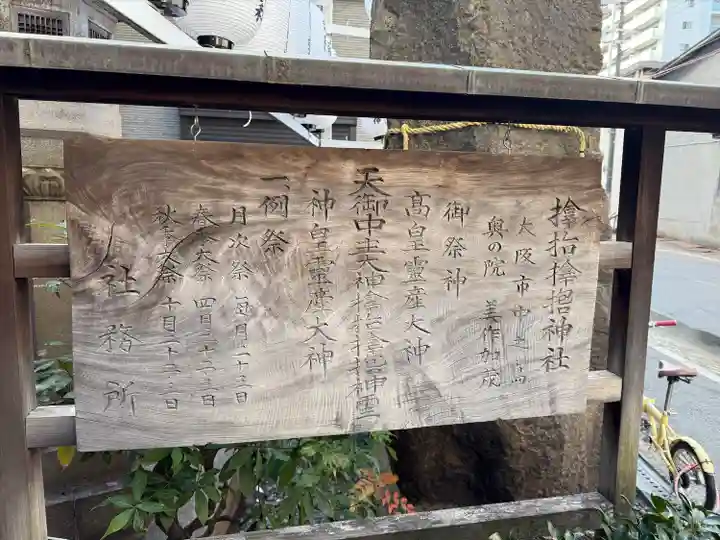 𢮦抬𢮦𪮇神社
大阪市中之島
奥の院 美作加茂
御祭神
高皇霊産大神
天御中主大神𢮦抬𢮦𪮇神霊
神皇霊産大神
一、例祭
月次祭 毎月二十三日
春季大祭 四月二十二・三日
秋季大祭 十月二十二・三日
社務所